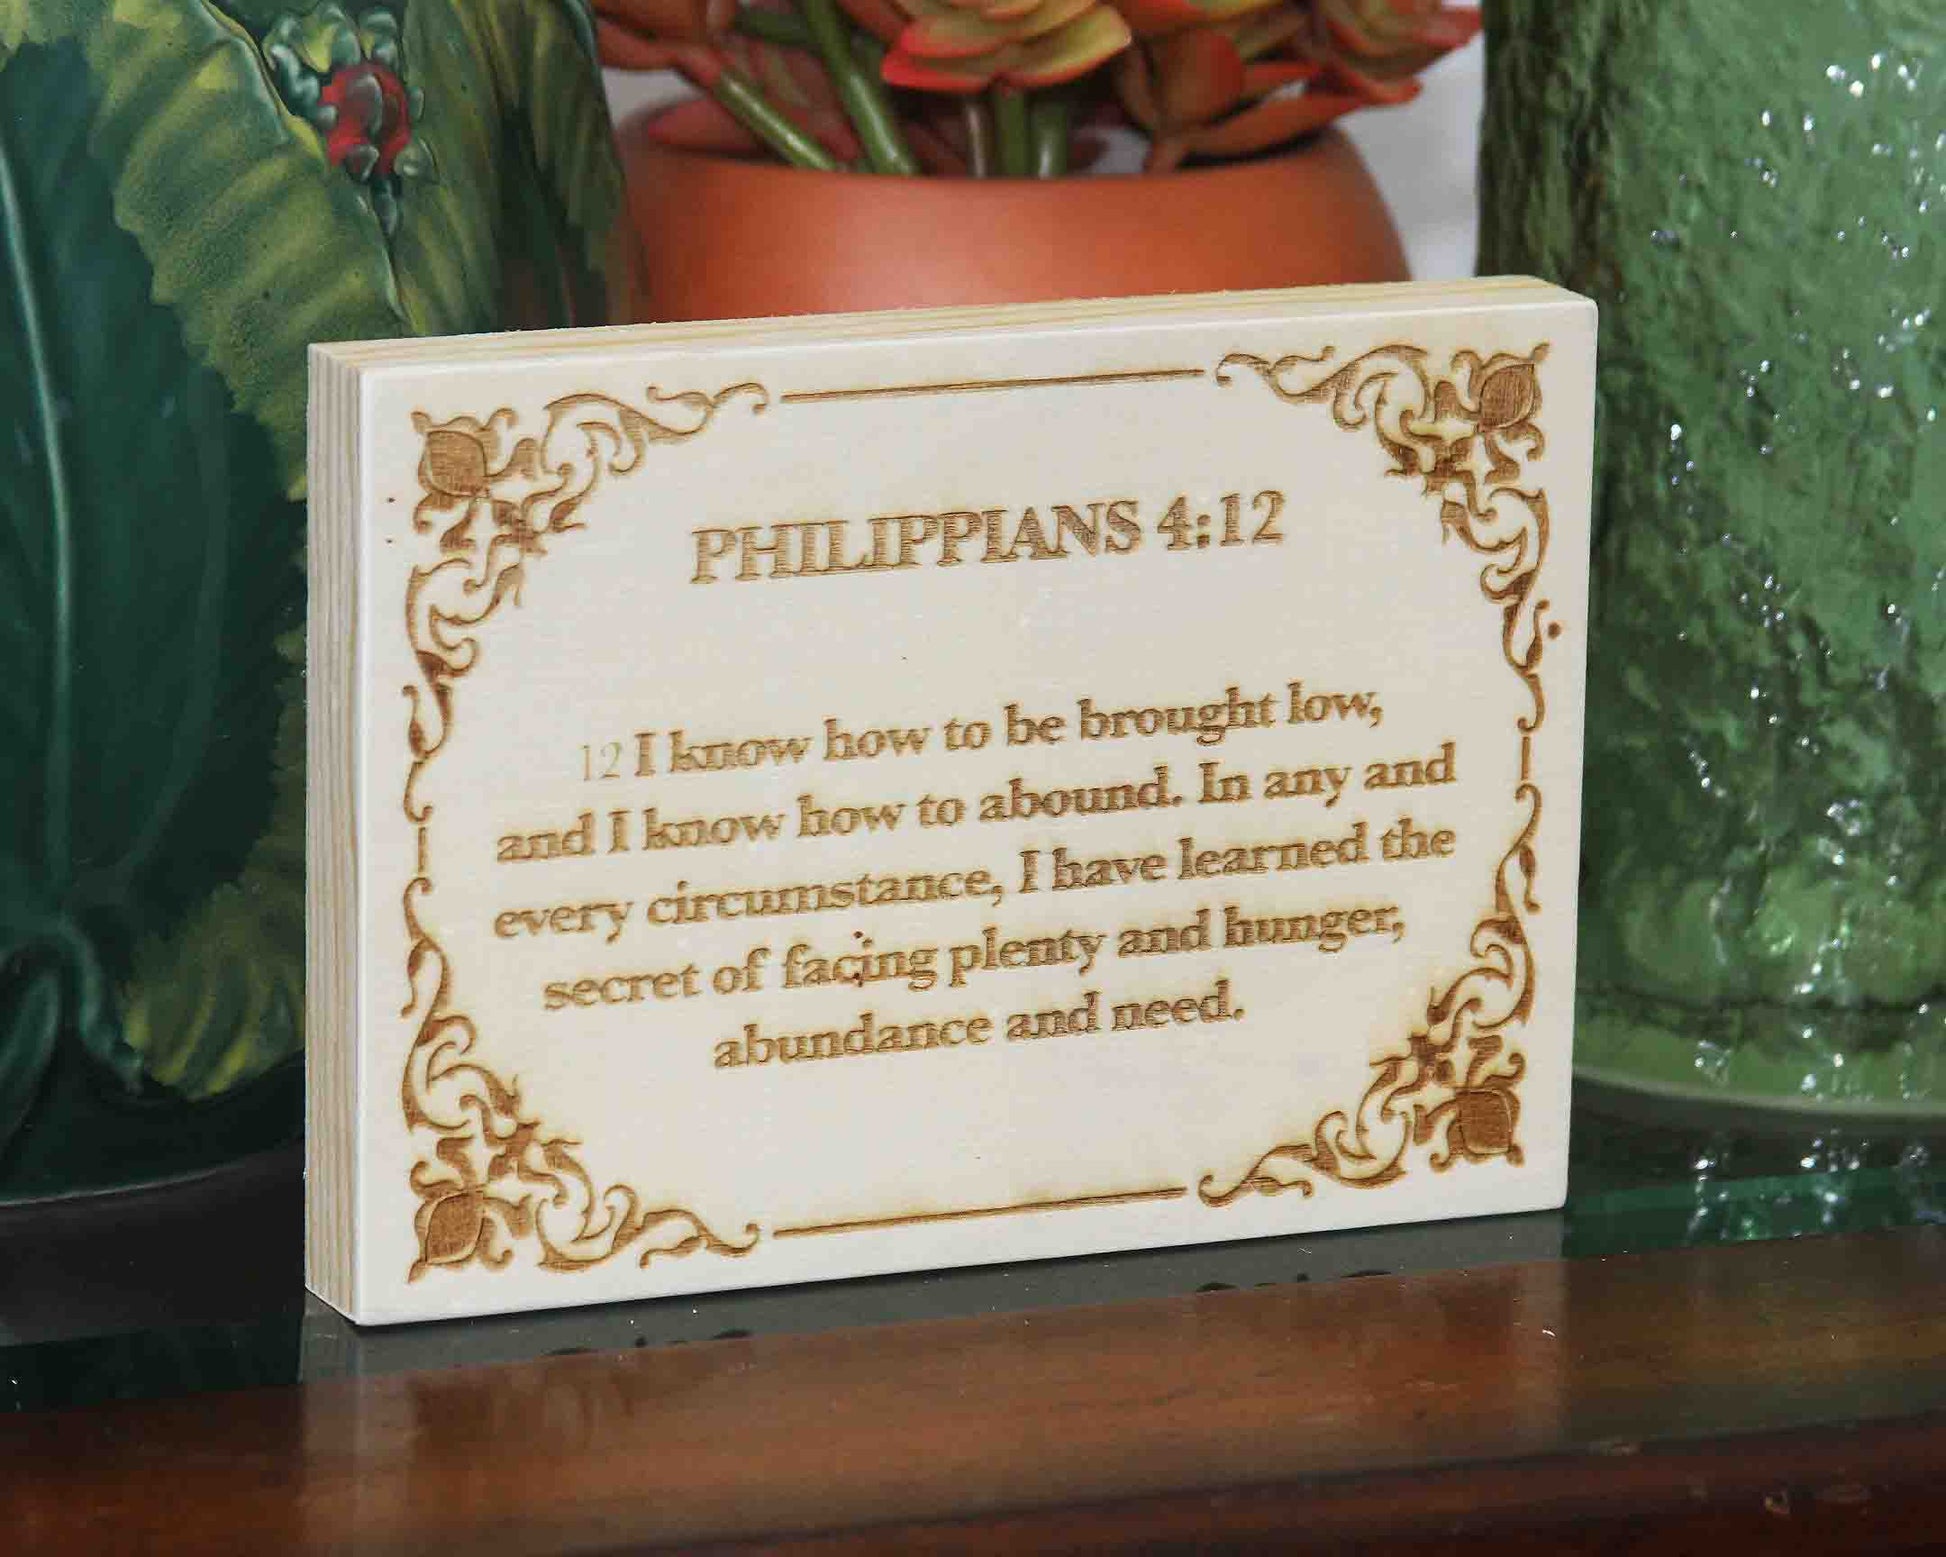 PHILIPPIANS 4:12
12 I know how to be brought low,
and I know how to abound. In any and
every circumstance, I have learned the
secret of facing plenty and hunger,
abundance and need.